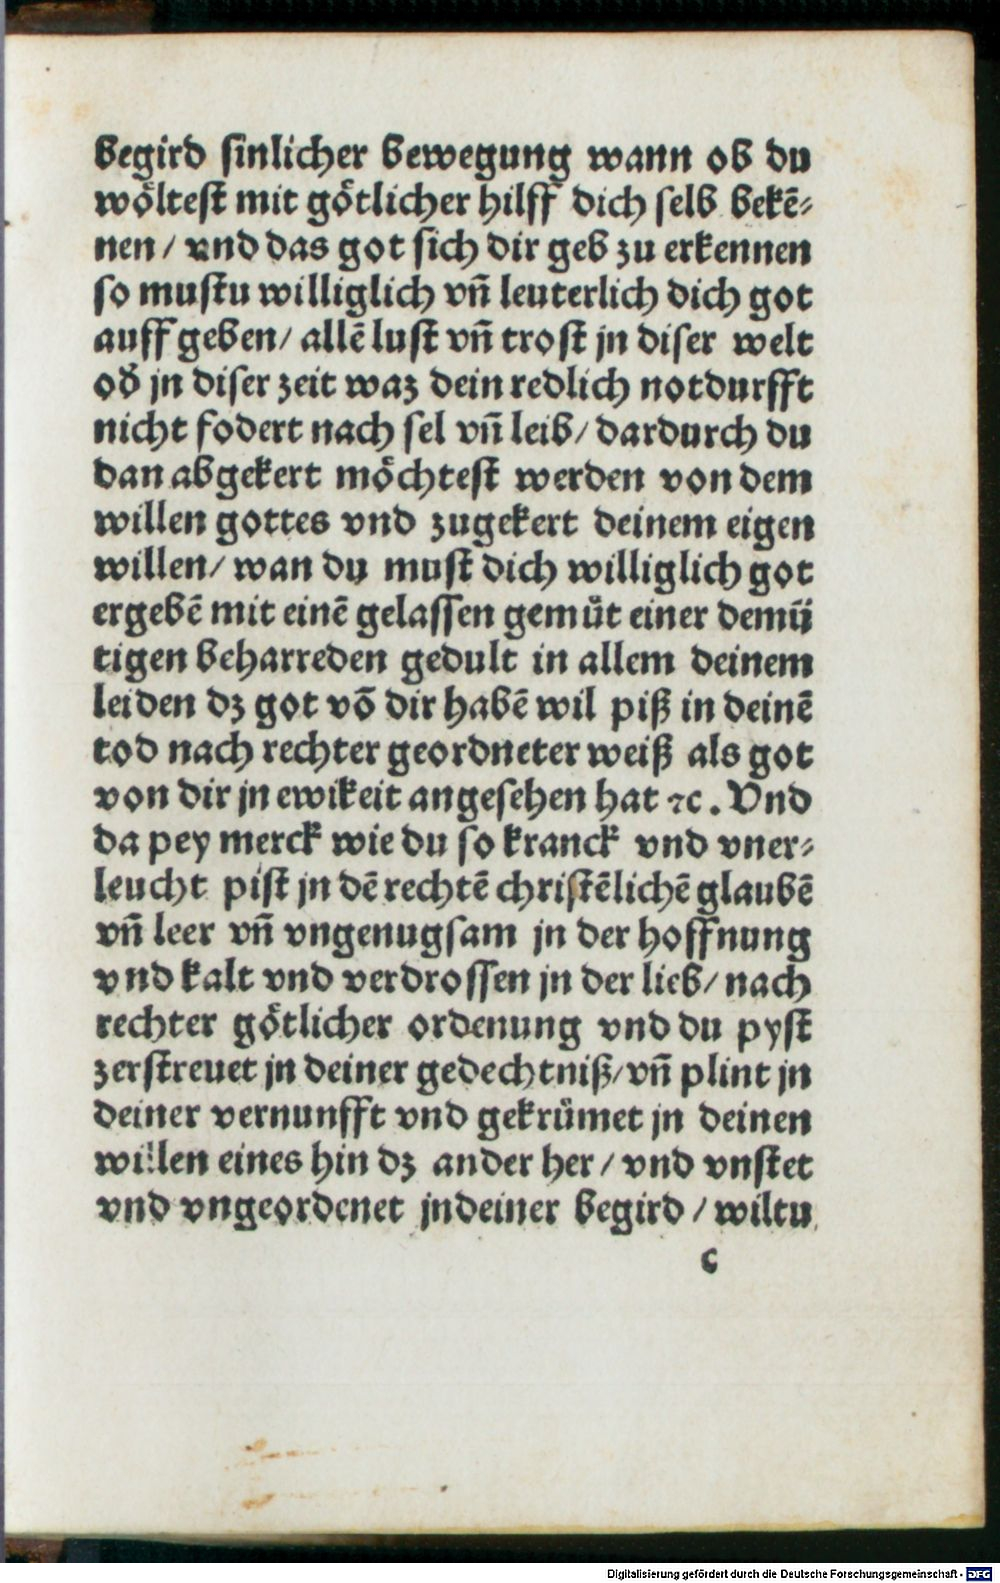 begird sinlicher bewegung wann ob du
wöltest mit götlicher hilff dich selb bekē⸗
nen / vnd das got sich dir geb zu erkennen
so mustu williglich vn̄ leuterlich dich got
auff geben / allē lust vn̄ trost jn diser welt
ob jn diser zeit waz dein redlich notdurfft
nicht fodert nach sel vn̄ leib / dardurch du
dan abgekert möchtest werden von dem
willen gottes vnd zugekert deinem eigen
willen / wan du must dich williglich got
ergebē mit einē gelassen gemüt einer demü
tigen beharreden gedult in allem deinem
leiden dz got vō dir habē wil piß in deinē
tod nach rechter geordneter weiß als got
von dir jn ewikeit angesehen hat ⁊c. Vnd
da pey merck wie du so kranck vnd vner⸗
leucht pist jn dē rechtē christēlichē glaubē
vn̄ leer vn̄ vngenugsam jn der hoffnung
vnd kalt vnd verdrossen jn der lieb / nach
rechter götlicher ordenung vnd du pyst
zerstreuet jn deiner gedechtniß / vn̄ plint jn
deiner vernunfft vnd gekrümet jn deinen
willen eines hin dz ander her / vnd vnstet
vnd vngeordenet jndeiner begird / wiltu
c
Digitalisierung gefördert durch die Deutsche Forschungsgemeinschaft - DFG